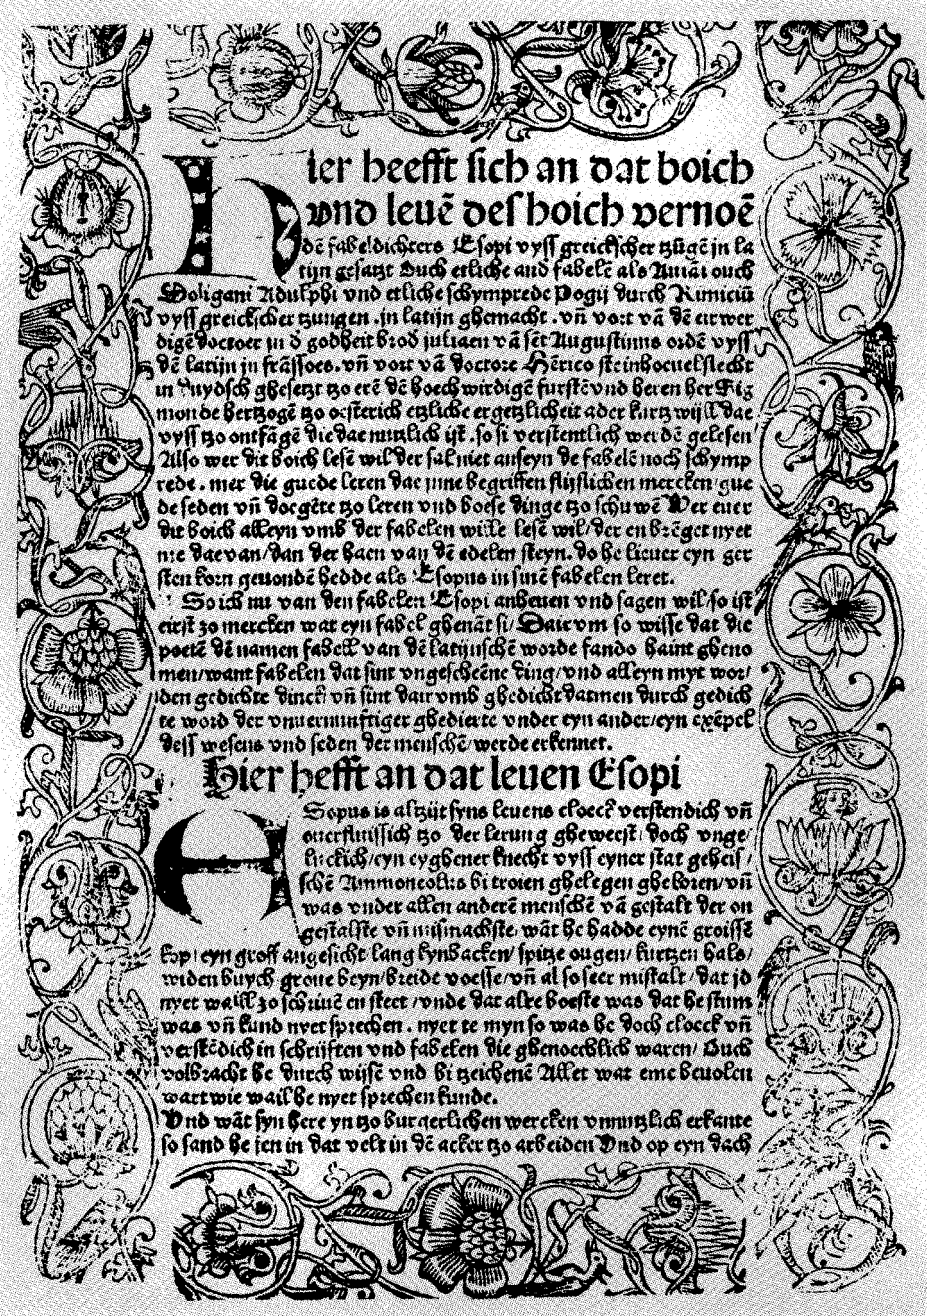 Hier heefft sich an dat boich
vnd leuē des hoich vernoē
dē fabeldichters Esopi vyss greickscher tzūgē jn la
tijn gesatzt Ouch etliche and fabelē als Auiāi ouch
Doligani Adulphi vnd etliche schymprede Pogij durch Rimiciū
vyss greickscher tzungen .jn latijn ghemacht .vñ vort vā dē eirwer
digē doctoer in d godheit brod juliaen vā sēt Augustinus ordē vyss
dē latijn jn frāssoes. vñ vort vā doctore Hērico steinhoeuel slecht
in duydsch ghesetzt tzo erē dē hoech wirdigē furstē vnd heren her Sig
monde hertzogē tzo oesterich etzliche ergetzlicheit ader kurtzwijll dae
vyss tzo ontfāgē die dae nutzlich ist .so si verstentlich werdē gelesen/
Also wer dit boich lesē wil der sal niet anseyn de fabelē noch schymp
rede . mer die guede leren dae jnne begriffen flijslichen mercken/ gue
de seden vñ doegēte tzo leren vnd boese dinge tzo schuwē Wer euer
dit boich alleyn vmb der fabelen wille lesē wil/ der en brēget nyet
me daevan/ dan der haen van dē edelen steyn. do he lieuer eyn ger
sten korn geuondē hedde als Esopus in sinē fabelen leret.
So ich nu van den fabelen Esopi anheuen vnd sagen wil/ so ist
eirst zo mercken wat eyn fabel ghenāt si/ Dair vm so wisse dat die
poetē dē namen fabell van dē latijnschē worde fando haint gheno
men/ want fabelen dat sint vngescheēne ding/ vnd alleyn myt wor/
den gedichte dinck vñ sint dair vmb ghedicht datmen durch gedich
te word der vnuernunftiger ghedierte vnder eyn ander/ eyn exēpel
dess wesens vnd seden der menschē/ werde erkennet.
Hier hefft an dat leuen Esopi
ESopus is altzijt syns leuens cloeck verstendich vñ
ouerflussich tzo der lerung gheweest/ doch vnge/
luckich/ eyn eyghener knecht vyss eyner stat geheis/
schē Ammoneolus bi troien ghelegen gheboren/ vñ
was vnder allen anderē menschē vā gestalt der on
gestalste vñ mismachste/ wāt he hadde eynē groissē
kop/ eyn groff angesicht lang kynbacken/ spitze ougen/ kurtzen hals/
widen buych groue beyn/ breide voesse/ vñ al so seer mistalt/ dat jd
nyet waill zo schriuē en steet/ vnde dat alre boeste was dat he stum
was vñ kund nyet sprechen . nyet te myn so was he doch cloeck vñ
verstēdich in schrijften vnd fabelen die ghenoechlich waren/ Ouch
volbracht he durch wijsē vnd bi tzeichenē Allet wat eme beuolen
wart wie wail he nyet sprechen kunde.
Vnd wāt syn here yn tzo burgerlichen wercken vnnutzlich erkante
so sand he jen in dat velt in dē acker tzo arbeiden Vnd op eyn dach